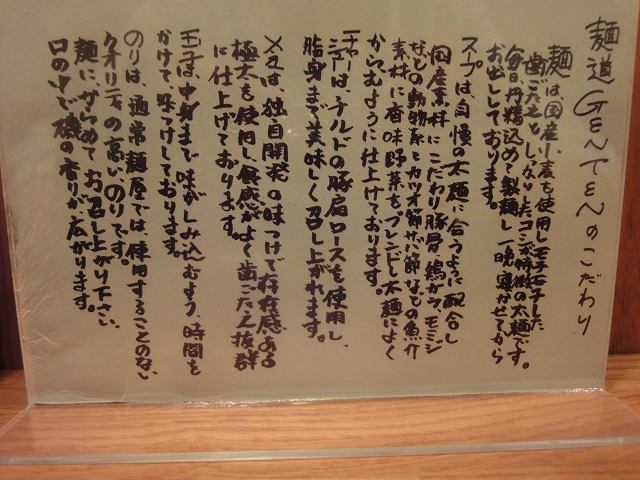 麺道GENTENのこだわり
麺は国産小麦を使用しモチモチした
歯ごたえとしっかりしたコシが特徴の太麺です。
毎日丹精込めて製麺し一晩寝かせてから
お出ししております。
スープは自慢の太麺に合うように配合し
国産素材にこだわり豚骨、鶏がら、モミジ
などの動物系とカツオ節、サバ節などの魚介
素材に香味野菜をブレンドし太麺によく
からむように仕上げております。
チャーシューは、チルドの豚肩ロースを使用し、
脂身まで美味しく召し上がれます。
メンマは、独自開発の味つけで存在感ある
極太を使用し食感がよく歯ごたえ抜群
に仕上げております。
玉子は、中身まで味がしみ込むよう、時間を
かけて、味つけしております。
のりは、通常麺屋では、使用することのない
クオリティの高いのりです。
麺に、からめてお召し上がり下さい。
口の中で磯の香りが広がります。